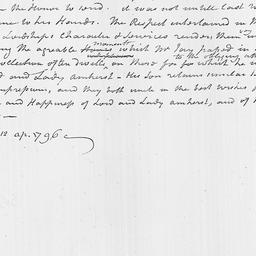 the Honor to send. it was not until last
me to his Hands. The Respect entertained in
Lordships Character & Services renders their
the agreable moments which Mr Jay passed in
to the obliging
collection often dwells on those for which he
and Lady Amherst - His Son retains similar
impressions, and they both unite in the best wishes
and Happiness of Lord and Lady Amherst, and of
12 ap. 1796